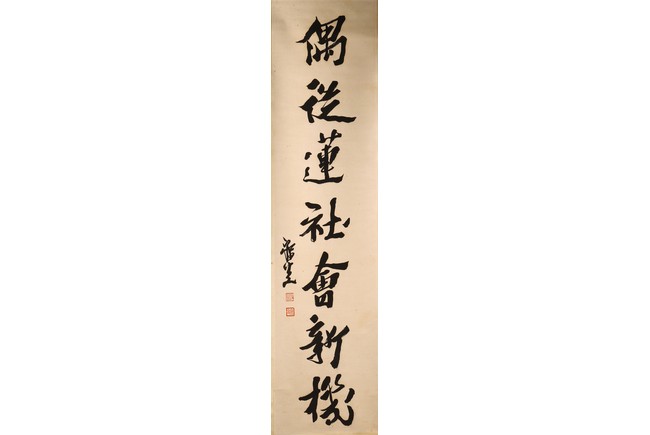 偶從蓮社會新機